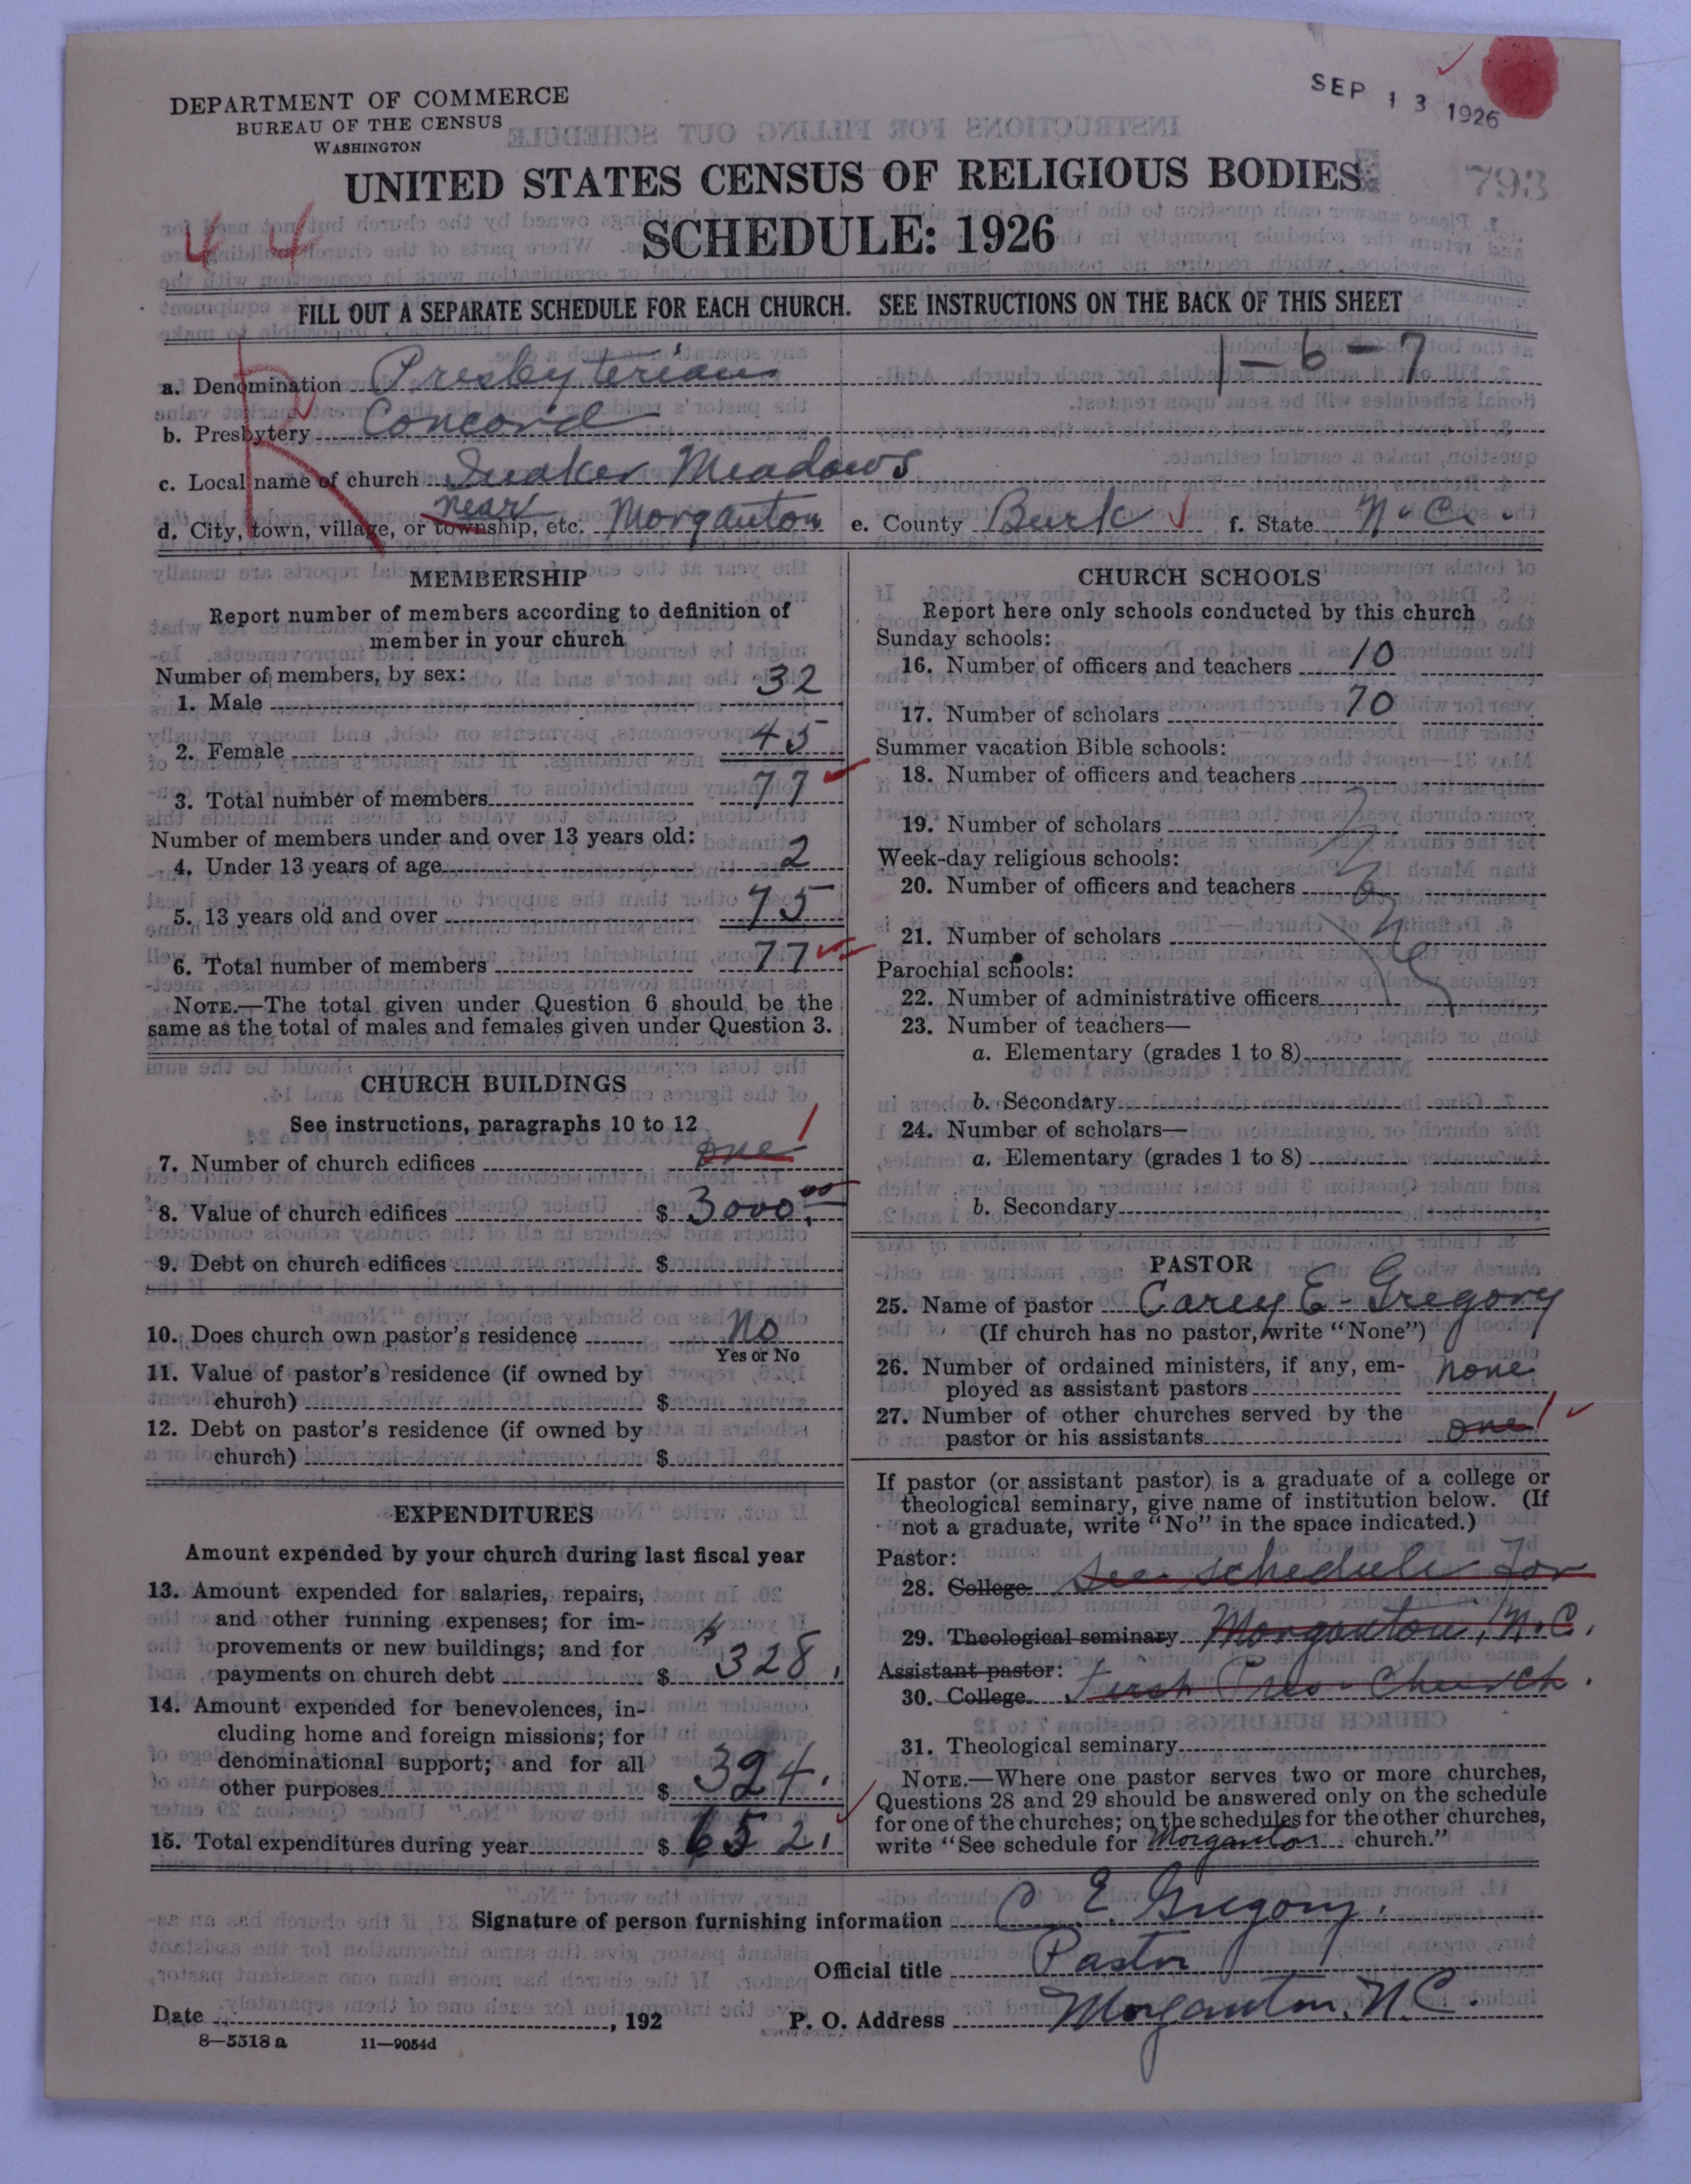 DEPARTMENT OF COMMERCE
BUREAU OF THE CENSUS
WASHINGTON
SEP 13 1926
793
UNITED STATES CENSUS OF RELIGIOUS BODIES
SCHEDULE: 1926
4 4
FILL OUT A SEPARATE SCHEDULE FOR EACH CHURCH. SEE INSTRUCTIONS ON THE BACK OF THIS SHEET
1-6-7
R
a. Denomination Presbyterian
b. Presbytery Concord
c. Local name of church Quaker Meadows
d. City, town, village, or township, etc. near Morganton e. County Burk f. State N.C.
MEMBERSHIP
Report number of members according to definition of
member in your church
Number of members, by sex:
1. Male 32
2. Female 45
3. Total number of members 77
Number of members under and over 13 years old:
4. Under 13 years of age 2
5. 13 years old and over 75
6. Total number of members 77
NOTE.—The total given under Question 6 should be the
same as the total of males and females given under Question 3.
CHURCH BUILDINGS
See instructions, paragraphs 10 to 12
7. Number of church edifices one 1
8. Value of church edifices $ 3000.00
9. Debt on church edifices $
10. Does church own pastor's residence No
Yes or No
11. Value of pastor's residence (if owned by
church) $
12. Debt on pastor's residence (if owned by
church) $
EXPENDITURES
Amount expended by your church during last fiscal year
13. Amount expended for salaries, repairs,
and other running expenses; for im-
provements or new buildings; and for
payments on church debt $ $328.
14. Amount expended for benevolences, in-
cluding home and foreign missions; for
denominational support; and for all
other purposes $ 324.
15. Total expenditures during year $ 652.
CHURCH SCHOOLS
Report here only schools conducted by this church
Sunday schools:
16. Number of officers and teachers 10
17. Number of scholars 70
Summer vacation Bible schools:
18. Number of officers and teachers
19. Number of scholars
Week-day religious schools:
20. Number of officers and teachers
21. Number of scholars
Parochial schools:
22. Number of administrative officers
23. Number of teachers—
a. Elementary (grades 1 to 8)
b. Secondary
24. Number of scholars—
a. Elementary (grades 1 to 8)
b. Secondary
PASTOR
25. Name of pastor Carey E. Gregory
(If church has no pastor, write "None")
26. Number of ordained ministers, if any, em-
ployed as assistant pastors none
27. Number of other churches served by the
pastor or his assistants one 1
If pastor (or assistant pastor) is a graduate of a college or
theological seminary, give name of institution below. (If
not a graduate, write "No" in the space indicated.)
Pastor:
28. College See schedule for
29. Theological seminary Morganton, N.C.
Assistant pastor:
30. College First Pres. Church.
31. Theological seminary
NOTE.—Where one pastor serves two or more churches,
Questions 28 and 29 should be answered only on the schedule
for one of the churches; on the schedules for the other churches,
write "See schedule for Morganton church."
Signature of person furnishing information C. E. Gregory.
Official title Pastor
Date , 192 P. O. Address Morganton, N.C.
8—5518 a 11—9054d